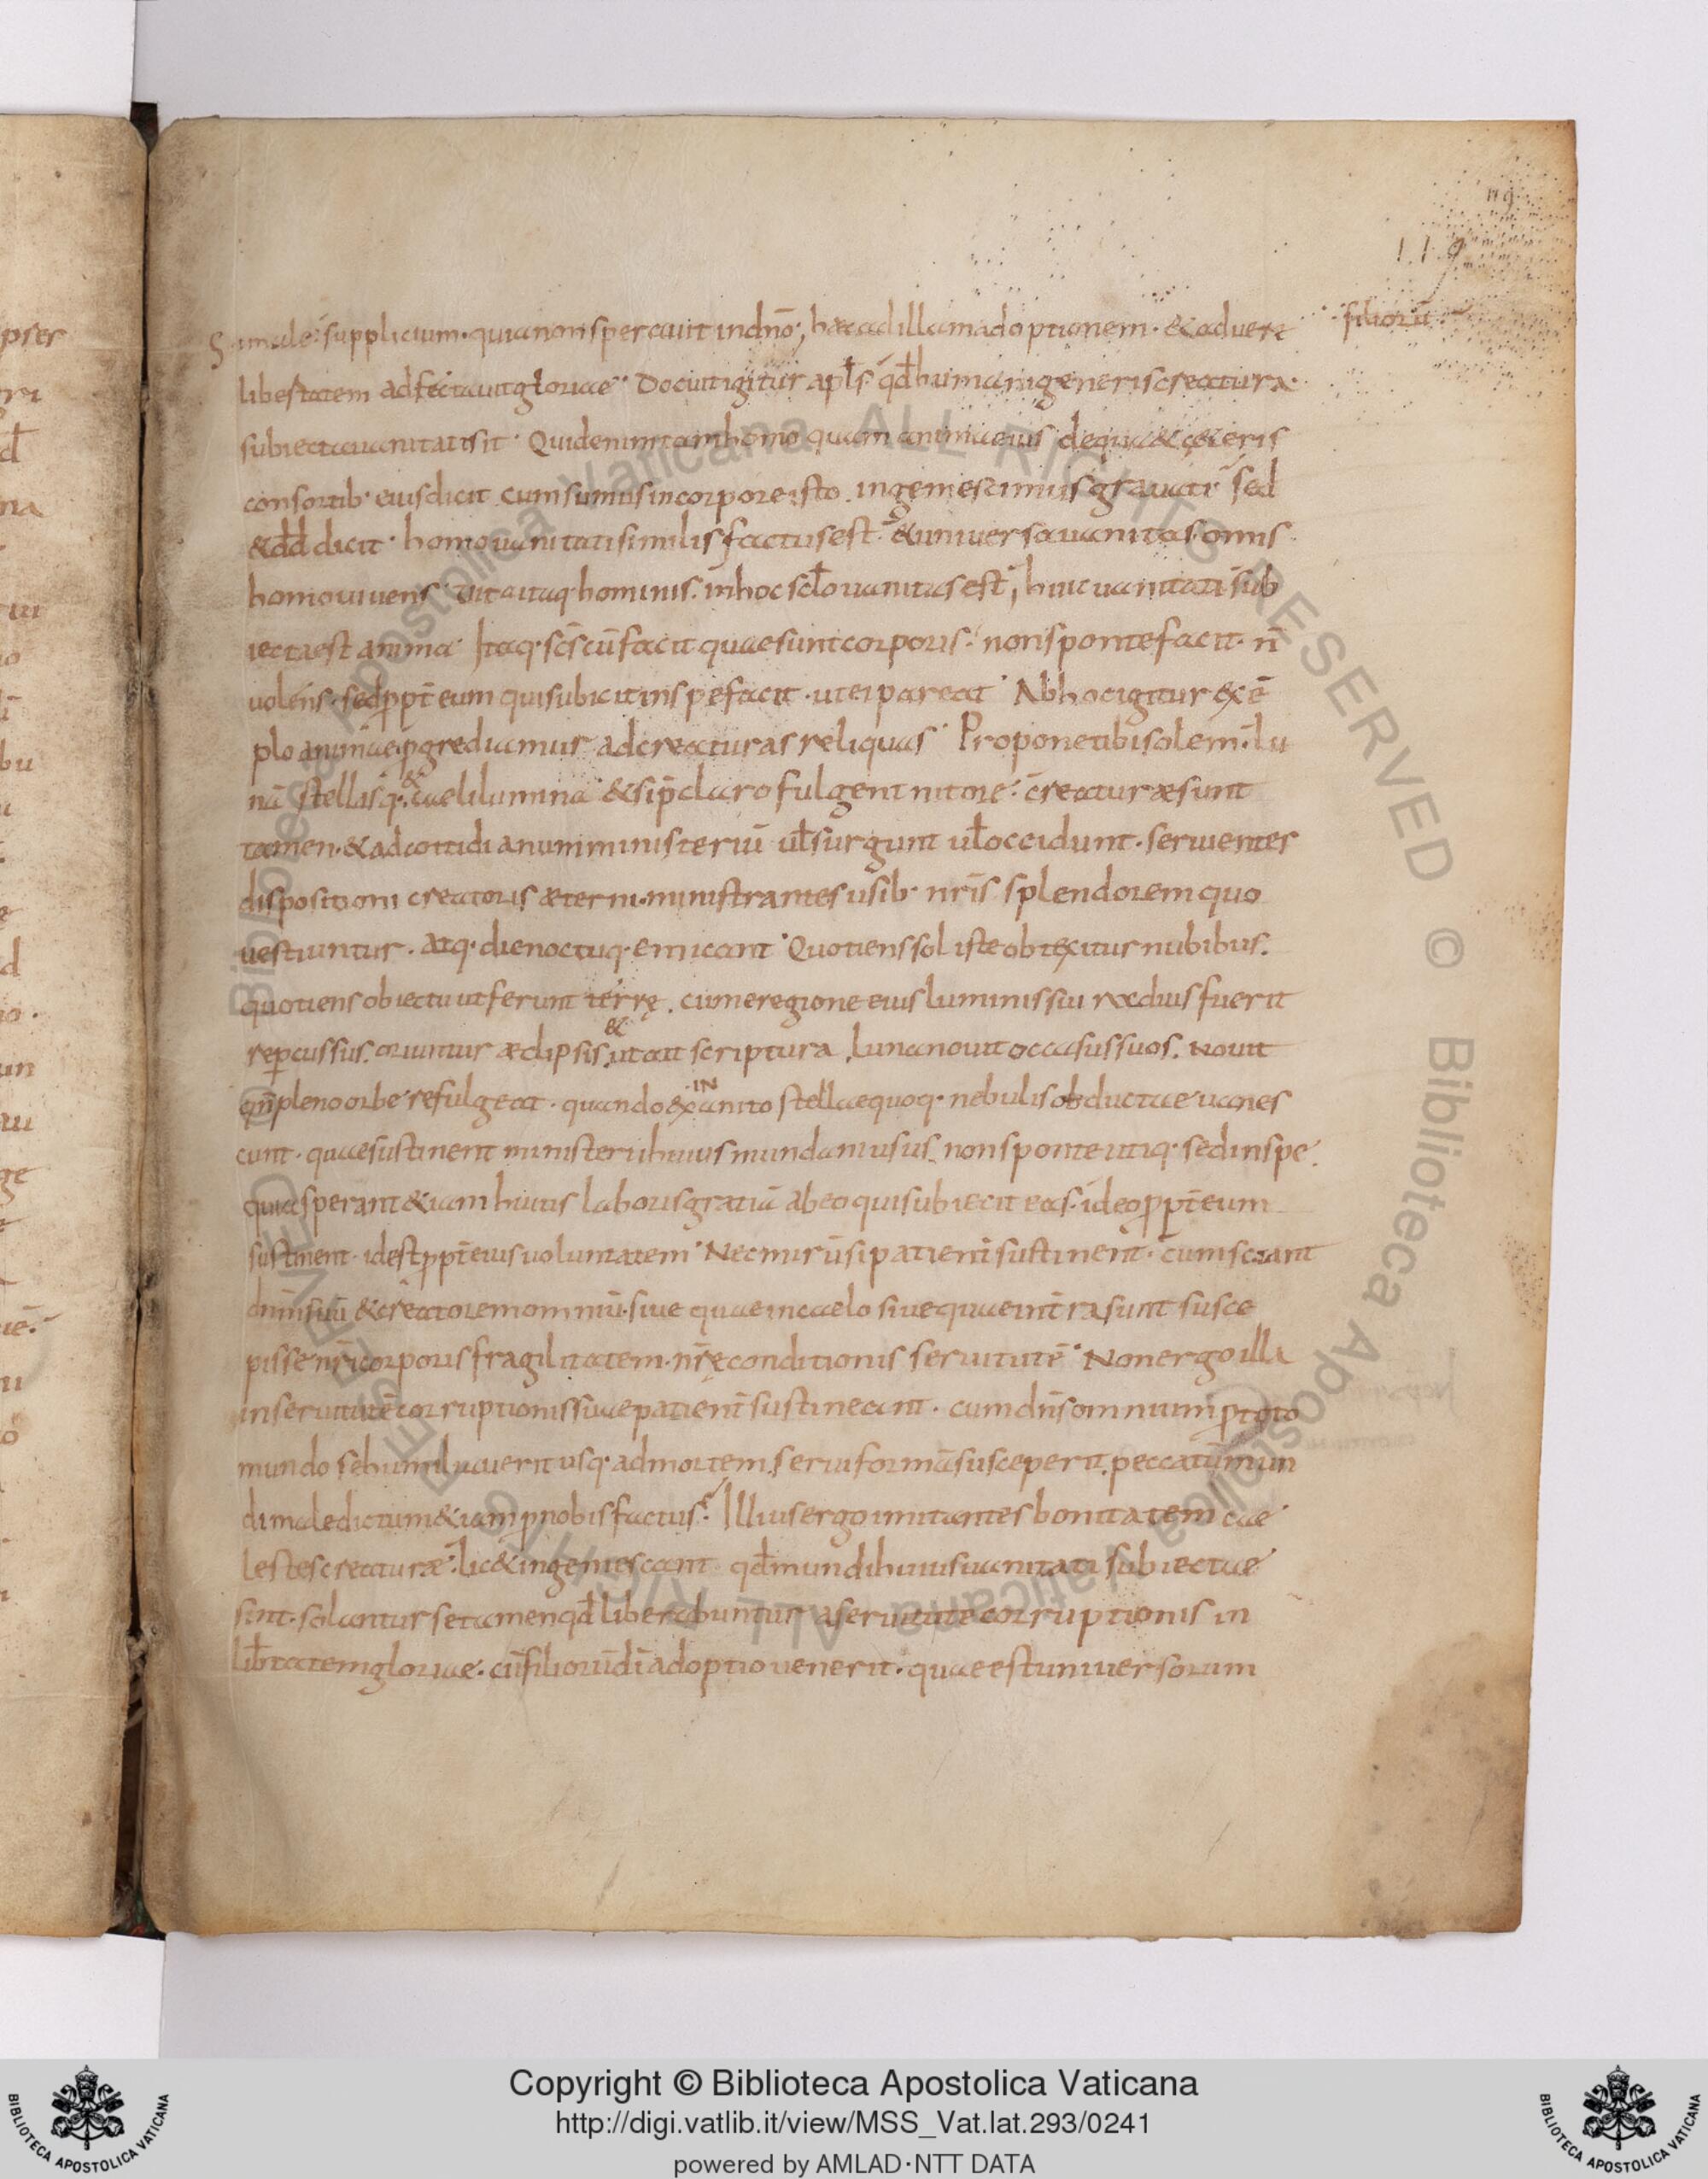 119
119
S imale supplicium· quia non speravit in dn̄o; haec ad illam adoptionem· & ad verā filiorū
libertatem adfectavit gloriae· Docuit igitur apl̄s qd̄ humani generis creatura
subiecta vanitati sit· Quid enim tam homo quam anima eius de qua & ceteris
consortib· eius dicit cum sumus in corpore isto ingemescimus gravati· sed
& dd̄ dicit· homo vanitati similis factus est· & universa vanitas· omnis
homo vivens· Vita itaq· hominis· in hoc scl̄o vanitas est; huic vanitati sub
iecta est anima· Itaq· sc̄s cū facit quae sunt corporis· non sponte facit· n̄
volens· sed ppt̄ eum qui subicit in spe facit· ut ei pareat· Ab hoc igitur exē
plo animae pgrediamur ad creaturas reliquas· Propone tibi solem· lu
nā stellasq· & caeli lumina· & si p̄claro fulgent nitore· creaturæ sunt
tamen· & ad cottidianum ministeriū vl̄ surgunt vl̄ occidunt· servientes
dispositioni creatoris æterni· ministrantes usib· nr̄is splendorem quo
vestiuntur· atq· die noctuq· emicant· Quotiens sol iste obtexitur nubibus·
quotiens obiectu ut ferunt terrę· cum e regione eius luminis sui radius fuerit
repcussus· oriuntur æclipsis· & ut ait scriptura, luna novit occasus suos· novit
qn̄ pleno orbe refulgeat· quando exinanito stellae quoq· nebulis obductae vanes
cunt· quae sustinent ministerii huius mundani usus· non sponte utiq· sed in spe·
quia sperant & iam huius laboris gratiā ab eo qui subiecit eas· ideo ppt̄ eum
sustinent· id est ppt̄ eius voluntatem· Nec mirū si patient̄ sustinent· cum sciant
dnm̄ suū & creatorem omniū· sive quae in caelo sive quae in t̄ra sunt susce
pisse nr̄i corporis fragilitatem· nr̄ę conditionis servitutē· Non ergo illa
in servitute corruptionis suae patient̄ sustineant· cum dn̄s omnium p toto
mundo se humiliaverit usq· ad mortem· servi formā susceperit· peccatū mun
di maledictum & iam p nobis factus· Illius ergo imitantes bonitatem cae
lestes creaturæ· lic& ingemescant qd̄ mundi huius vanitati subiectae
sint· solantur se tamen qd̄ liberabuntur a servitute corruptionis in
lib̄tatem gloriae· cū filiorū dī adoptio venerit· quae est universorum
Copyright © Biblioteca Apostolica Vaticana
http://digi.vatlib.it/view/MSS_Vat.lat.293/0241
powered by AMLAD·NTT DATA
BIBLIOTECA APOSTOLICA VATICANA
BIBLIOTECA APOSTOLICA VATICANA